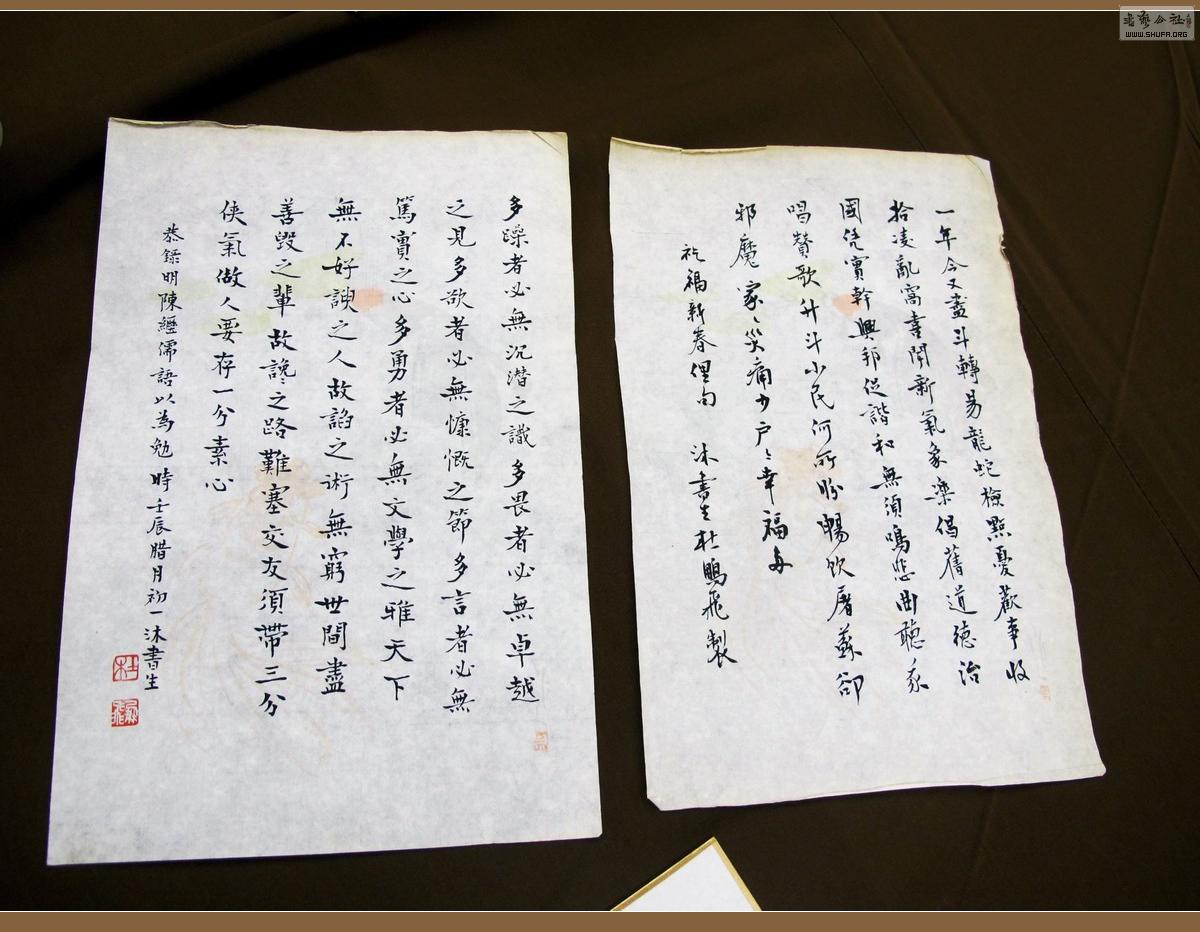 一年今又盡斗轉易龍蛇檢點憂歡事收
拾凌亂窩喜聞新氣象樂倡舊道德治
國凭實幹興邦促諧和無須鳴悲曲聽我
唱贊歌升斗小民何所盼暢飲屠蘇卻
邪魔家々災痛少戶々幸福多
祈福新春俚句 沐書生杜鵬飛製
多躁者必無沉潛之識多畏者必無卓越
之見多欲者必無慷慨之節多言者必無
篤實之心多勇者必無文學之雅天下
無不好諛之人故諂之術無窮世間盡
善毀之輩故讒々之路難塞交友須帶三分
俠氣做人要存一分素心
恭錄明陳繼儒語以為勉時壬辰腊月初一沐書生
杜
鵬飛
書藝公社
WWW.SHUFA.ORG